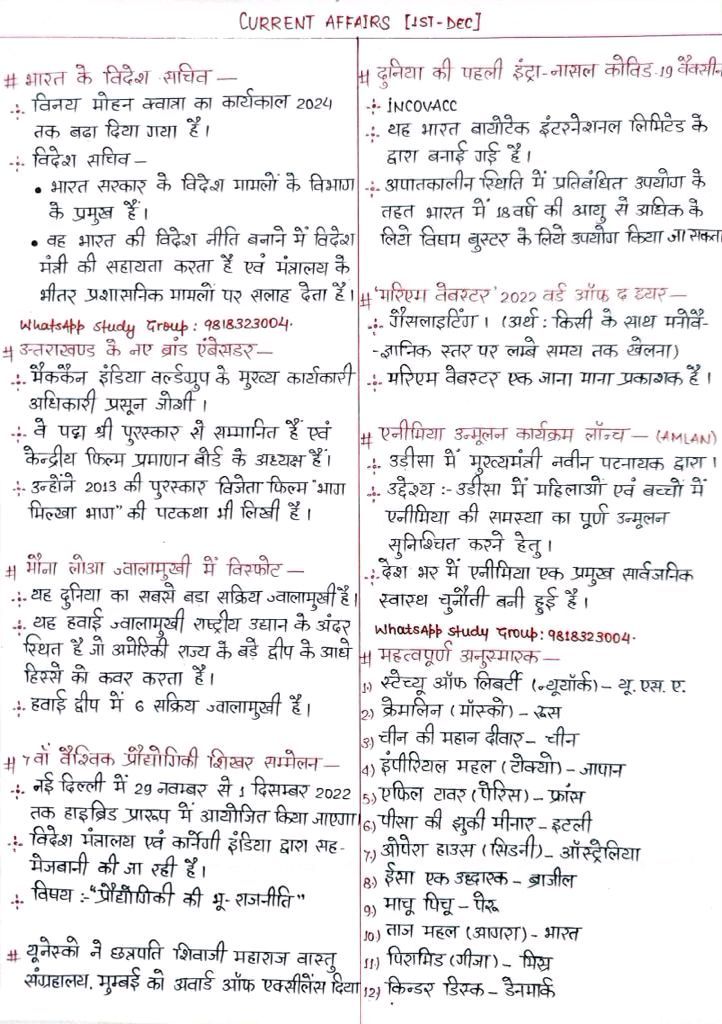 CURRENT AFFAIRS [1ST-DEC]
# भारत के विदेश सचिव —
⁘ विनय मोहन क्वात्रा का कार्यकाल 2024
तक बढा दिया गया है।
⁘ विदेश सचिव –
• भारत सरकार के विदेश मामलों के विभाग
के प्रमुख हैं।
• वह भारत की विदेश नीति बनाने में विदेश
मंत्री की सहायता करता है एवं मंत्रालय के
भीतर प्रशासनिक मामलों पर सलाह देता है।
WhatsApp Study Group : 9818323004.
# उत्तराखण्ड के नए ब्रांड एंबेसडर—
⁘ मैककैन इंडिया वर्ल्डग्रुप के मुख्य कार्यकारी
अधिकारी प्रसून जोशी।
⁘ वे पद्म श्री पुरस्कार से सम्मानित हैं एवं
केन्द्रीय फिल्म प्रमाणन बोर्ड के अध्यक्ष हैं।
⁘ उन्होंने 2013 की पुरस्कार विजेता फिल्म "भाग
मिल्खा भाग" की पटकथा भी लिखी है।
# मौना लोआ ज्वालामुखी में विस्फोट —
⁘ यह दुनिया का सबसे बडा सक्रिय ज्वालामुखी है।
⁘ यह हवाई ज्वालामुखी राष्ट्रीय उद्यान के अंदर
स्थित है जो अमेरिकी राज्य के बड़े द्वीप के आधे
हिस्से को कवर करता है।
⁘ हवाई द्वीप में 6 सक्रिय ज्वालामुखी हैं।
# 7वां वैश्विक प्रौद्योगिकी शिखर सम्मेलन—
⁘ नई दिल्ली में 29 नवम्बर से 1 दिसम्बर 2022
तक हाइब्रिड प्रारूप में आयोजित किया जाएगा
⁘ विदेश मंत्रालय एवं कार्नेगी इंडिया द्वारा सह-
मेजबानी की जा रही है।
⁘ विषय :-"प्रौद्योगिकी की भू- राजनीति"
# यूनेस्को ने छत्रपति शिवाजी महाराज वास्तु
संग्रहालय, मुम्बई को अवार्ड ऑफ एक्सीलेंस दिया
# दुनिया की पहली इंट्रा-नासल कोविड-19 वैक्सीन
⁘ iNCOVACC
⁘ यह भारत बायोटेक इंटरनेशनल लिमिटेड के
द्वारा बनाई गई है।
⁘ अपातकालीन स्थिति में प्रतिबंधित उपयोग के
तहत भारत में 18 वर्ष की आयु से अधिक के
लिये विषम बुस्टर के लिये उपयोग किया जा सकता
# 'मरिएम वेबस्टर' 2022 वर्ड ऑफ द इयर—
⁘ गैसलाइटिंग। (अर्थ : किसी के साथ मनोवै-
-ज्ञानिक स्तर पर लाम्बे समय तक खेलना)
⁘ मरिएम वेबस्टर एक जाना माना प्रकाशक है।
# एनीमिया उन्मूलन कार्यक्रम लॉन्च — (AMLAN)
⁘ उड़ीसा में मुख्यमंत्री नवीन पटनायक द्वारा।
⁘ उद्देश्य :- उड़ीसा में महिलाओं एवं बच्चों में
एनीमिया की समस्या का पूर्ण उन्मूलन
सुनिश्चित करने हेतु।
⁘ देश भर में एनीमिया एक प्रमुख सार्वजनिक
स्वास्थ चुनौती बनी हुई है।
WhatsApp Study Group: 9818323004.
# महत्वपूर्ण अनुस्मारक—
1) स्टेच्यू ऑफ लिबर्टी (न्यूयॉर्क) – यू. एस. ए.
2) क्रेमालिन (मॉस्को) – रूस
3) चीन की महान दीवार – चीन
4) इंपीरियल महल (टोक्यो) – जापान
5) एफिल टावर (पेरिस) – फ्रांस
6) पीसा की झुकी मीनार – इटली
7) ओपेरा हाउस (सिडनी) – ऑस्ट्रेलिया
8) ईसा एक उद्धारक – ब्राजील
9) माचू पिचू – पेरू
10) ताज महल (आगरा) – भारत
11) पिरामिड (गीजा) – मिस्र
12) किन्डर डिस्क – डेनमार्क